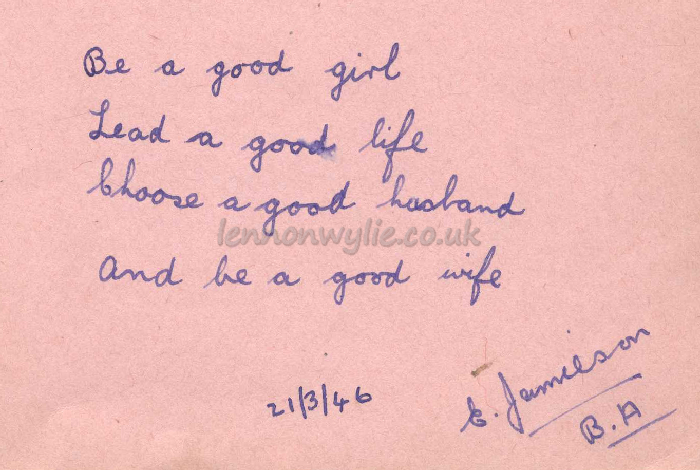 Be a good girl
Lead a good life
Choose a good husband
lennonwylie.co.uk
And be a good wife
21/3/46
E. Jamieson
B.A